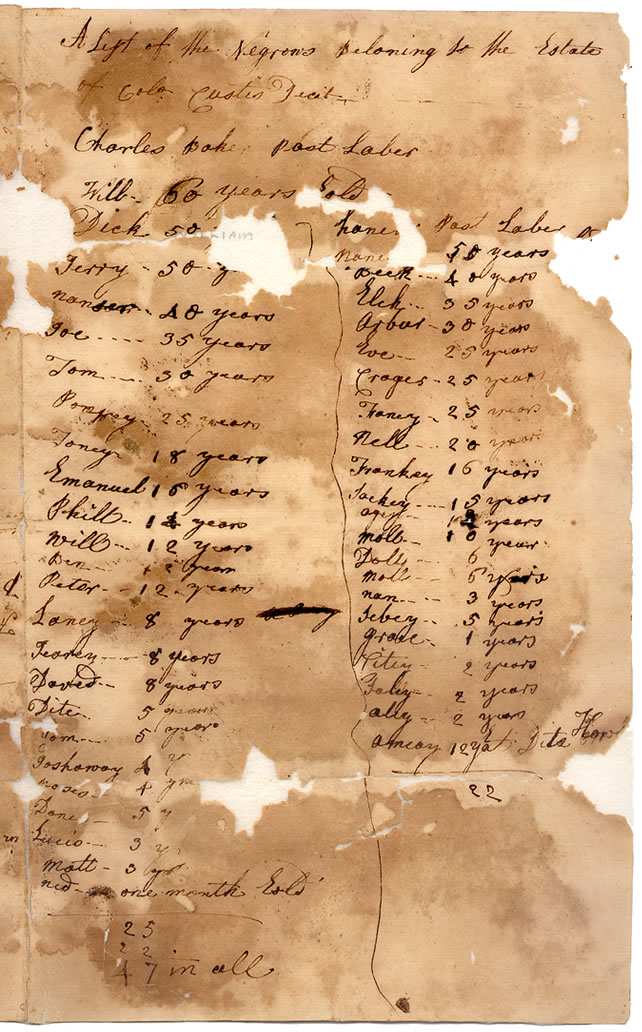 A List of the Negrows Beloning to the Estate
of Colo Custis Decit
Charles Past Laber
Will - 60 years Sold
Dick 50
Jerry - 50 y
40 years
Joe 35 years
Tom 30 years
Pompey 25 years
Toney 18 years
Emanuel 16 years
Phill 14 years
Will 12 years
Ben 12 year
Peter - 12 years
Laney 8 years
8 years
David 8 years
Dite 5 years
Tom 5 year
Joshaway 4 y
moses 4 yea
5 y
3 y
Matt - 3 yr
ned one month Eold
25
22
47 in all
Past Laber
nane 50 years
40 years
35 years
Arbur - 30 years
Eve 25 years
25 years
Faney - 25 years
Nell 20 years
Frankey 16 years
15 years
agey years
moll 10 year
Doll 6
moll 6 years
nan 3 years
5 years
grace 1 years
2 years
2 years
ally 2 years
12 y at
22